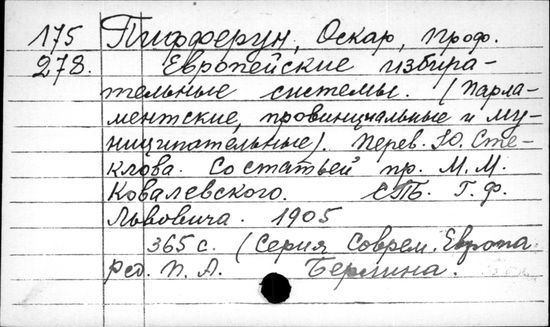 175 Пифферун, Оскар, проф.
278. Европейские избира-
тельные системы. (Парла-
ментские, провинциальные и му-
ниципательные). Перев. Ю. Сте-
клова. Со статьей пр. М. М.
Ковалевского. СПБ. Г. Ф.
Львовича. 1905
365 с. (Серия Соврем. Европа
Ред. П. А. Берлина.